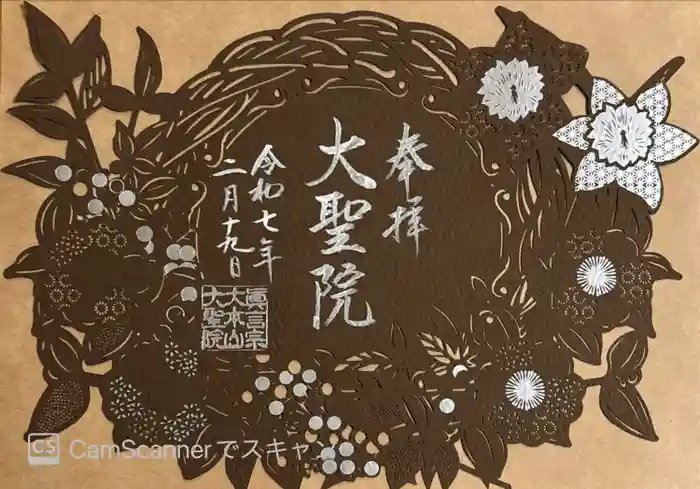 奉拝
大聖院
令和七年
二月十九日
眞言宗
大本山
大聖院
CS CamScannerでスキャ